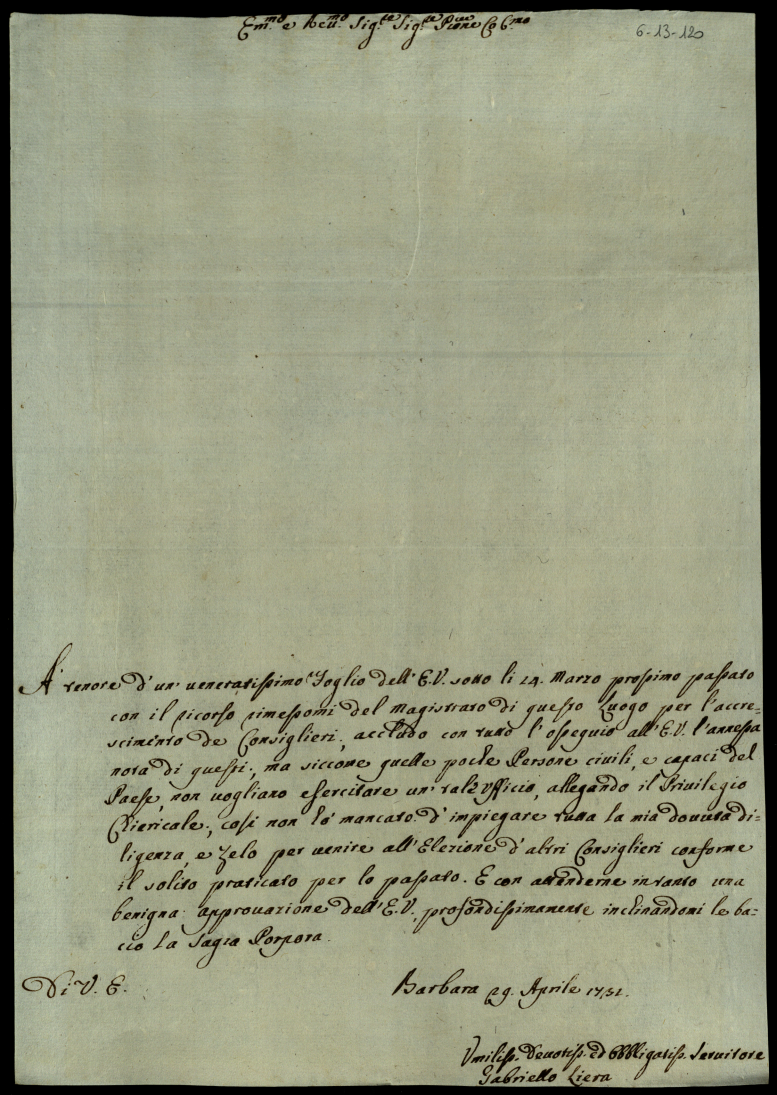 Em.mo e Reu.mo Sig.re Sig.re P.rone Co.mo
6-13-120
A' tenore d'un' ueneratissimo Foglio dell'E.V. sotto li 24. Marzo prossimo passato
con il ricorso rimessomi del Magistrato di questo Luogo per l'accre=
scimento de Consiglieri, accludo con tutto l'ossequio all'E.V. l'annessa
nota di questi, ma siccome quelle poche Persone ciuili, e capaci del
Paese, non uogliano esercitare un' tal'Vfficio, allegando il Priuilegio
Chiericale, cosi non hò mancato d'impiegare tutta la mia douuta di=
ligenza, e Zelo per uenire all'Elezione d'altri Consiglieri conforme
il solito praticato per lo passato. E con attenderne intanto una
benigna approuazione dell'E.V. profondissimamente inclinandomi le ba=
cio la Sagra Porpora.
Di V. E.
Barbara 29. Aprile 1751.
Vmiliss. Deuotiss. ed Obbligatiss. Seruitore
Gabriello Liera